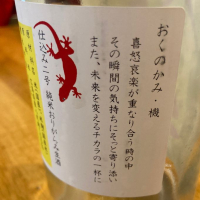 おくのかみ・機
喜怒哀楽が重なり合う時の中
その瞬間の気持ちにそっと寄り添い
また、未来を変えるチカラの一杯に
仕込み二号 純米おりがらみ生酒